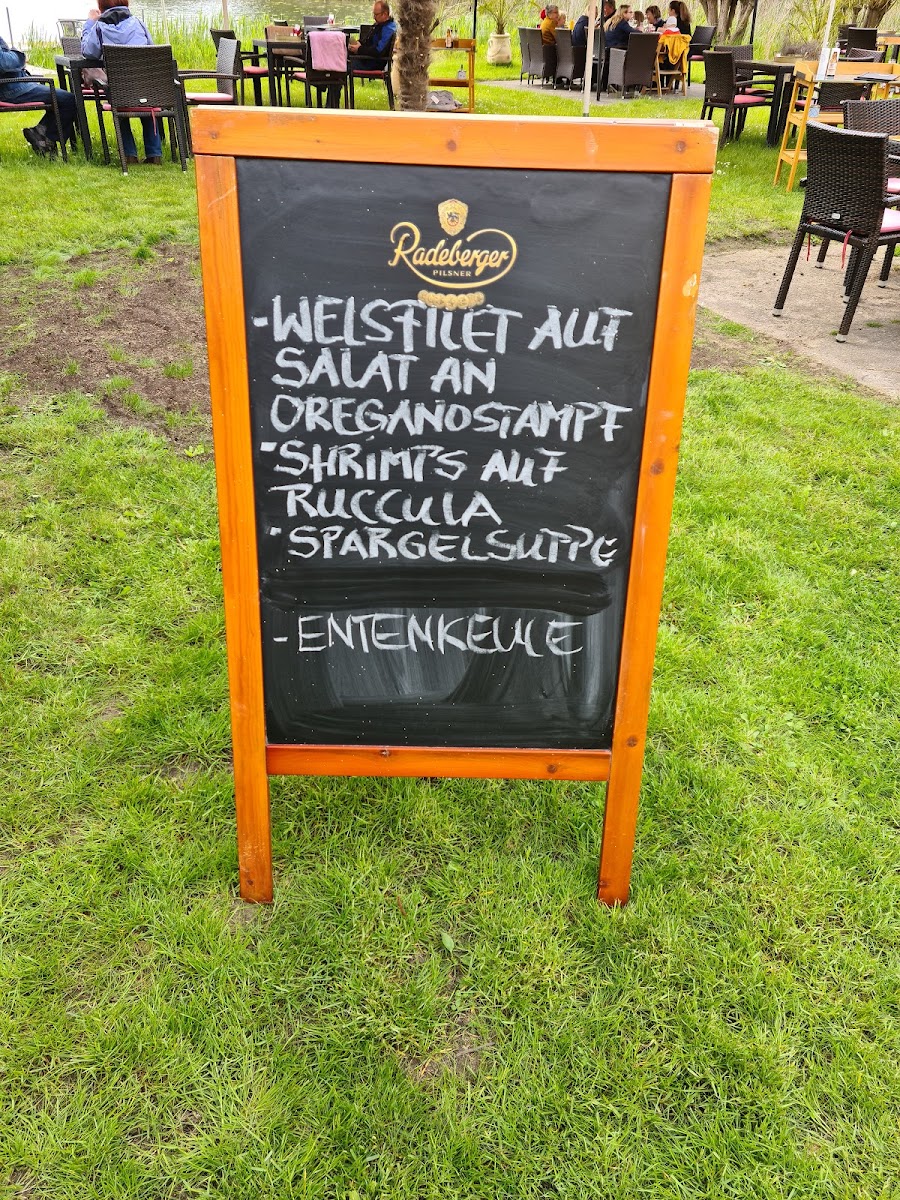 Radeberger
PILSNER
-WELSFILET AUF
SALAT AN
OREGANOSTAMPF
-SHRIMPS AUF
RUCCULA
-SPARGELSUPPE
-ENTENKEULE